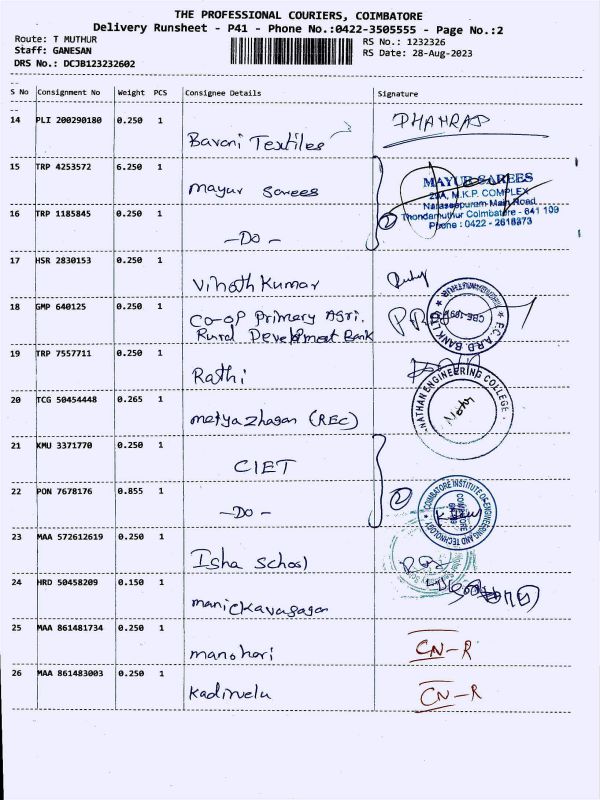 THE PROFESSIONAL COURIERS, COIMBATORE
Delivery Runsheet - P41 - Phone No.:0422-3505555 - Page No.:2
Route: T MUTHUR
RS No.: 1232326
Staff: GANESAN
RS Date: 28-Aug-2023
DRS No.: DCJB123232602
S No Consignment No Weight PCS Consignee Details Signature
14 PLI 200290180 0.250 1
Bavani Textiles
DHANRAJ
15 TRP 4253572 6.250 1
Mayur Sarees
MAYUR SAREES
29A, M.K.P. COMPLEX
Naraseepuram Main Road
Thondamuthur Coimbatore - 641 109
Phone : 0422 - 2618373
16 TRP 1185845 0.250 1
-Do-
2
17 HSR 2830153 0.250 1
Vinoth Kumar
18 GMP 640125 0.250 1
Co-op Primary Agri.
Rural Development Bank
19 TRP 7557711 0.250 1
Rathi
20 TCG 50454448 0.265 1
metyazhagan (REC)
NATHAN ENGINEERING COLLEGE
21 KMU 3371770 0.250 1
CIET
22 PON 7678176 0.855 1
-Do-
2
COIMBATORE INSTITUTE OF ENGINEERING AND TECHNOLOGY
23 MAA 572612619 0.250 1
Isha School
24 HRD 50458209 0.150 1
manickavasagan
25 MAA 861481734 0.250 1
manohari
CN-R
26 MAA 861483003 0.250 1
Kadirvelu
CN-R